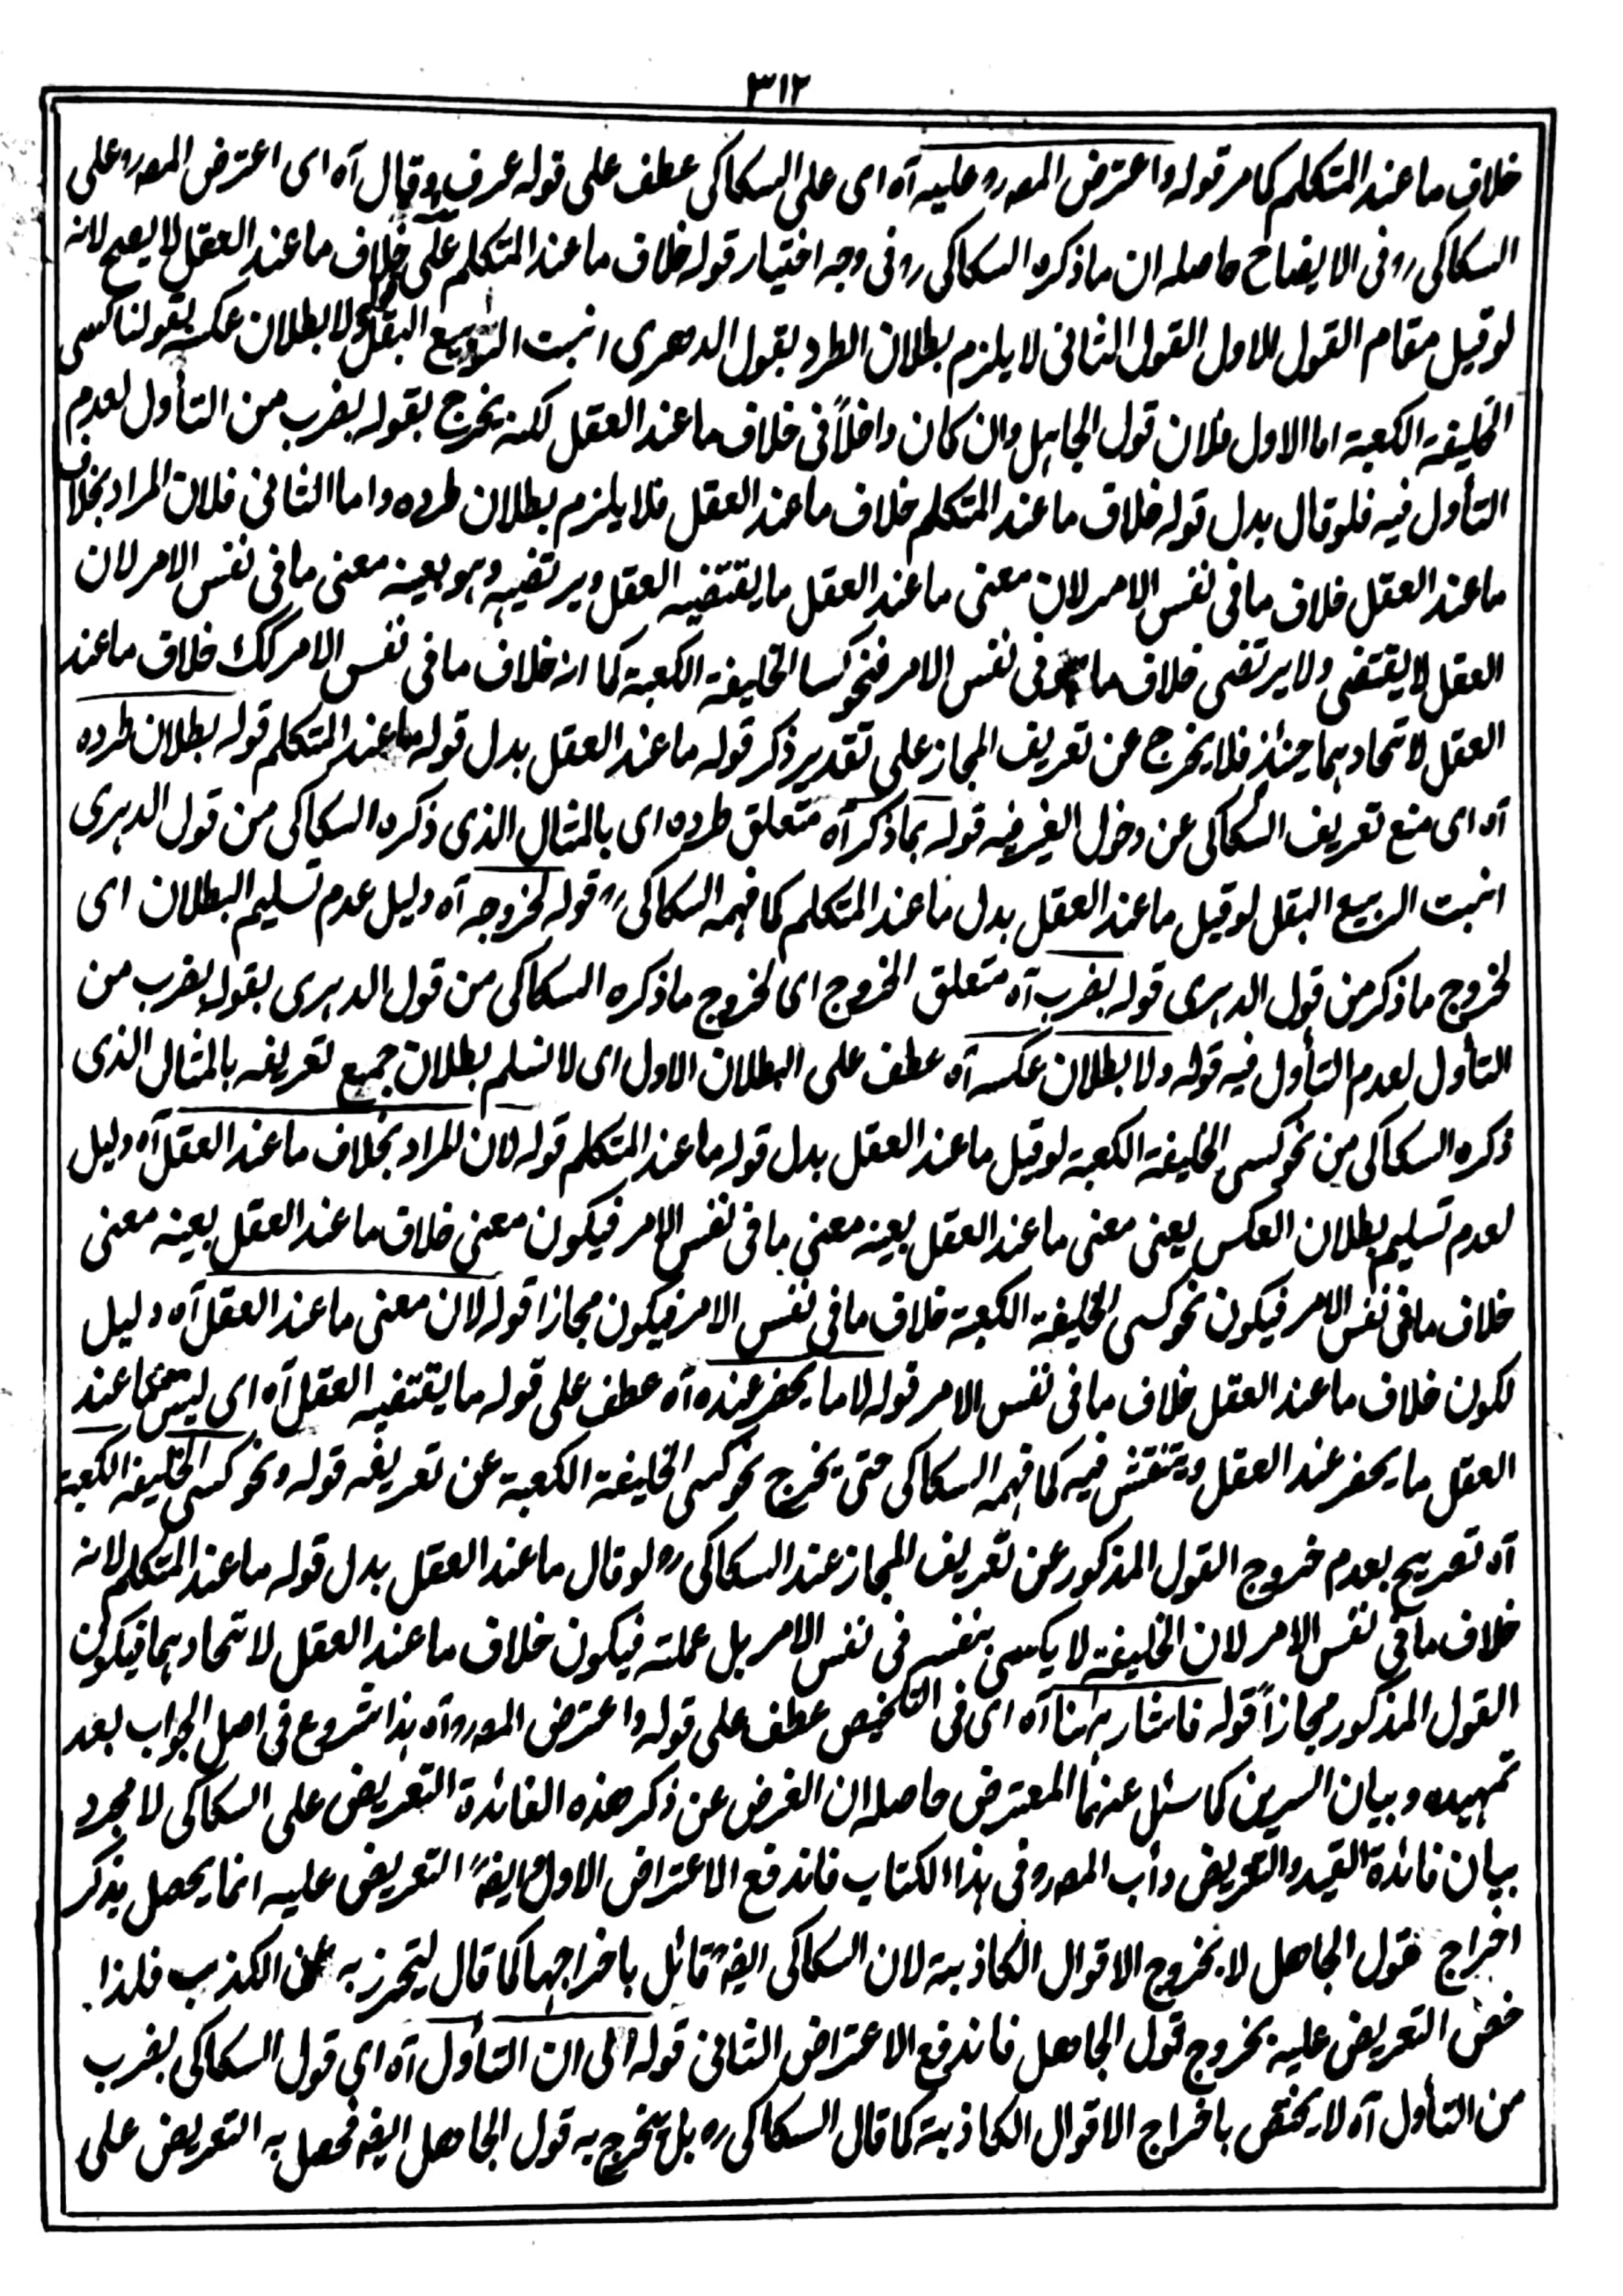 ٣١٢
خلاف ما عند المتكلم كما مر قوله واعترض المصـ رو عليه آه اى على السكاكى عطف على قوله عرف وقال آه اى اعترض المصـ رو على
السكاكى رو فى الايضاح حاصله ان ما ذكره السكاكى رو فى وجه اختيار قوله خلاف ما عند المتكلم على خلاف ما عند العقل لا يصح لانه
لو قيل مقام القول الاول القول الثانى لا يلزم بطلان الطرد بقول الدهرى انبت الربيع البقل ولا بطلان عكسه بقولنا كسى
الخليفة الكعبة اما الاول فلان قول الجاهل وان كان داخلاً فى خلاف ما عند العقل لكنه يخرج بقوله بضرب من التأول لعدم
التأول فيه فلو قال بدل قوله خلاف ما عند المتكلم خلاف ما عند العقل فلا يلزم بطلان طرده واما الثانى فلان المراد بخلاف
ما عند العقل خلاف ما فى نفس الامر لان معنى ما عند العقل ما يقتضيه العقل ويرتضيه وهو بعينه معنى ما فى نفس الامر لان
العقل لا يقتضى ولا يرتضى خلاف ما فى نفس الامر فنحو كسا الخليفة الكعبة كما انه خلاف ما فى نفس الامر كك خلاف ما عند
العقل لاتحادهما حينئذ فلا يخرج عن تعريف المجاز على تقدير ذكر قوله ما عند العقل بدل قوله ما عند المتكلم قوله بطلان طرده
آه اى منع تعريف السكاكى عن دخول الغير فيه قوله بما ذكر آه متعلق طرده اى بالمثال الذى ذكره السكاكى من قول الدهرى
انبت الربيع البقل لو قيل ما عند العقل بدل ما عند المتكلم كما فهمه السكاكى رو قوله لخروجه آه دليل عدم تسليم البطلان اى
لخروج ما ذكر من قول الدهرى قوله بضرب آه متعلق الخروج اى لخروج ما ذكره السكاكى من قول الدهرى بقوله بضرب من
التأول لعدم التأول فيه قوله ولا بطلان عكسه آه عطف على البطلان الاول اى لا نسلم بطلان جمع تعريفه بالمثال الذى
ذكره السكاكى من نحو كسى الخليفة الكعبة لو قيل ما عند العقل بدل قوله ما عند المتكلم قوله لان المراد بخلاف ما عند العقل آه دليل
لعدم تسليم بطلان العكس يعنى معنى ما عند العقل بعينه معنى ما فى نفس الامر فيكون معنى خلاف ما عند العقل بعينه معنى
خلاف ما فى نفس الامر فيكون نحو كسى الخليفة الكعبة خلاف ما فى نفس الامر فيكون مجازا قوله لان معنى ما عند العقل آه دليل
لكون خلاف ما عند العقل خلاف ما فى نفس الامر قوله لا ما يحضر عنده آه عطف على قوله ما يقتضيه العقل آه اى ليس معنى ما عند
العقل ما يحضر عند العقل وينتقش فيه كما فهمه السكاكى حتى يخرج نحو كسى الخليفة الكعبة عن تعريفه قوله ونحو كسى الخليفة الكعبة
آه تصريح بعدم خروج القول المذكور عن تعريف المجاز عند السكاكى رو لو قال ما عند العقل بدل قوله ما عند المتكلم لانه
خلاف ما فى نفس الامر لان الخليفة لا يكسى بنفسه فى نفس الامر بل عملته فيكون خلاف ما عند العقل لاتحادهما فيكون
القول المذكور مجازاً قوله فاشار ههنا آه اى فى التلخيص عطف على قوله واعترض المصـ رو آه هذا شروع فى اصل الجواب بعد
تمهيده وبيان السرين كما سئل عنهما المعترض حاصله ان الغرض عن ذكر هذه الفائدة التعريض على السكاكى لا مجرد
بيان فائدة القيد والتعريض دأب المصـ رو فى هذا الكتاب فاندفع الاعتراض الاول وايضاً التعريض عليه انما يحصل بذكر
اخراج قول الجاهل لا بخروج الاقوال الكاذبية لان السكاكى ايضا قائل باخراجها كما قال ليتحرز به عن الكذب فلذا
خص التعريض عليه بخروج قول الجاهل فاندفع الاعتراض الثانى قوله الى ان التأول آه اى قول السكاكى بضرب
من التأول آه لا يختص باخراج الاقوال الكاذبة كما قال السكاكى ره بل يخرج به قول الجاهل ايضا فحصل به التعريض على